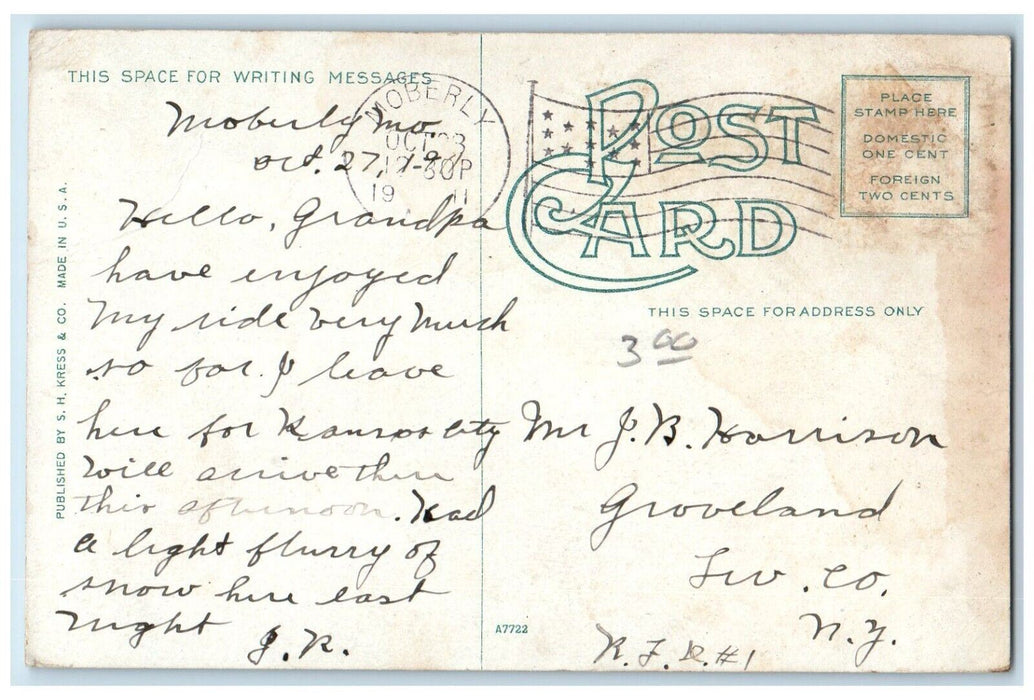 THIS SPACE FOR WRITING MESSAGES
Moberly Mo.
Oct. 27, 19
Hello, Grandpa
have enjoyed
My ride very Much
so far. I leave
here for Kansas City
Will arrive there
this afternoon. Had
a light flurry of
snow here last
night
J. R.
PUBLISHED BY S. H. KRESS & CO. MADE IN U. S. A.
MOBERLY
OCT
12-30P
19 11
POST
CARD
PLACE
STAMP HERE
DOMESTIC
ONE CENT
FOREIGN
TWO CENTS
THIS SPACE FOR ADDRESS ONLY
3 00
Mr J. B. Harrison
Groveland
Liv. Co.
N.Y.
R. F. D. #1
A7722